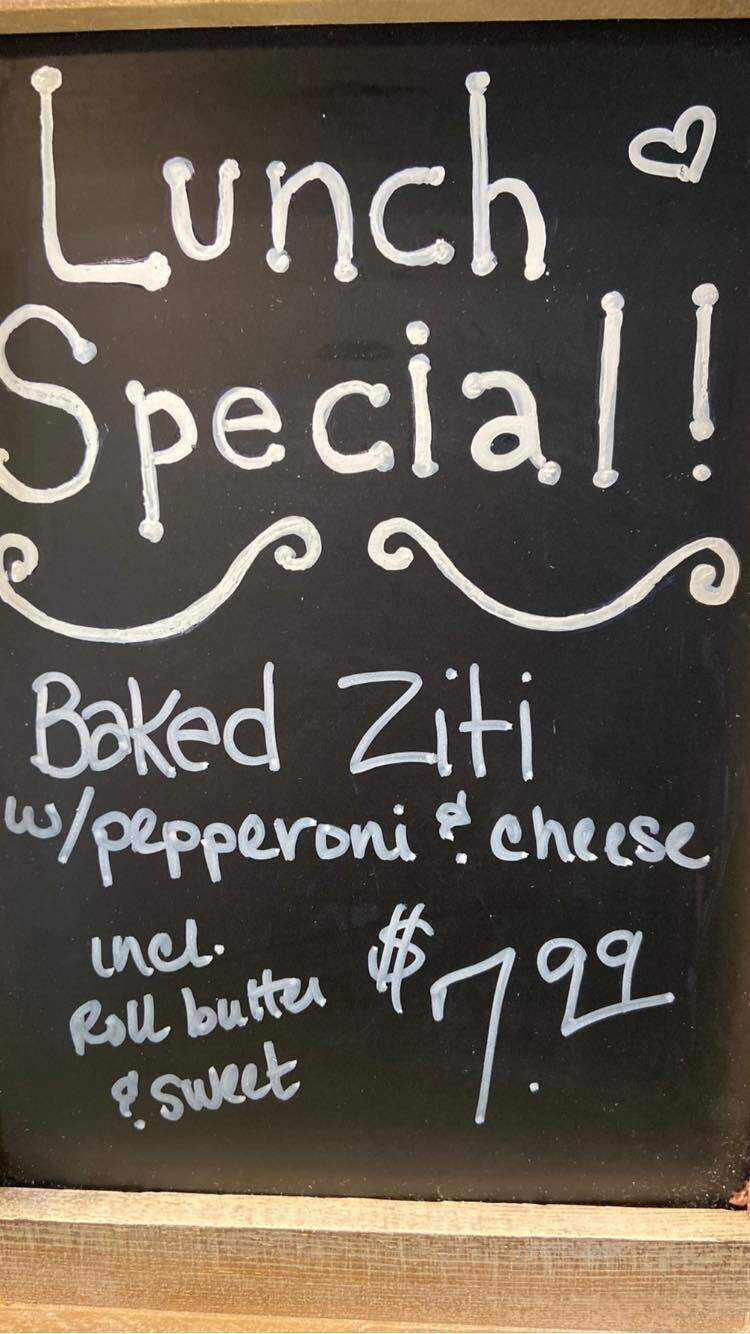 Lunch
Special!
Baked Ziti
w/pepperoni & cheese
incl.
Roll butter
& sweet
$7.99